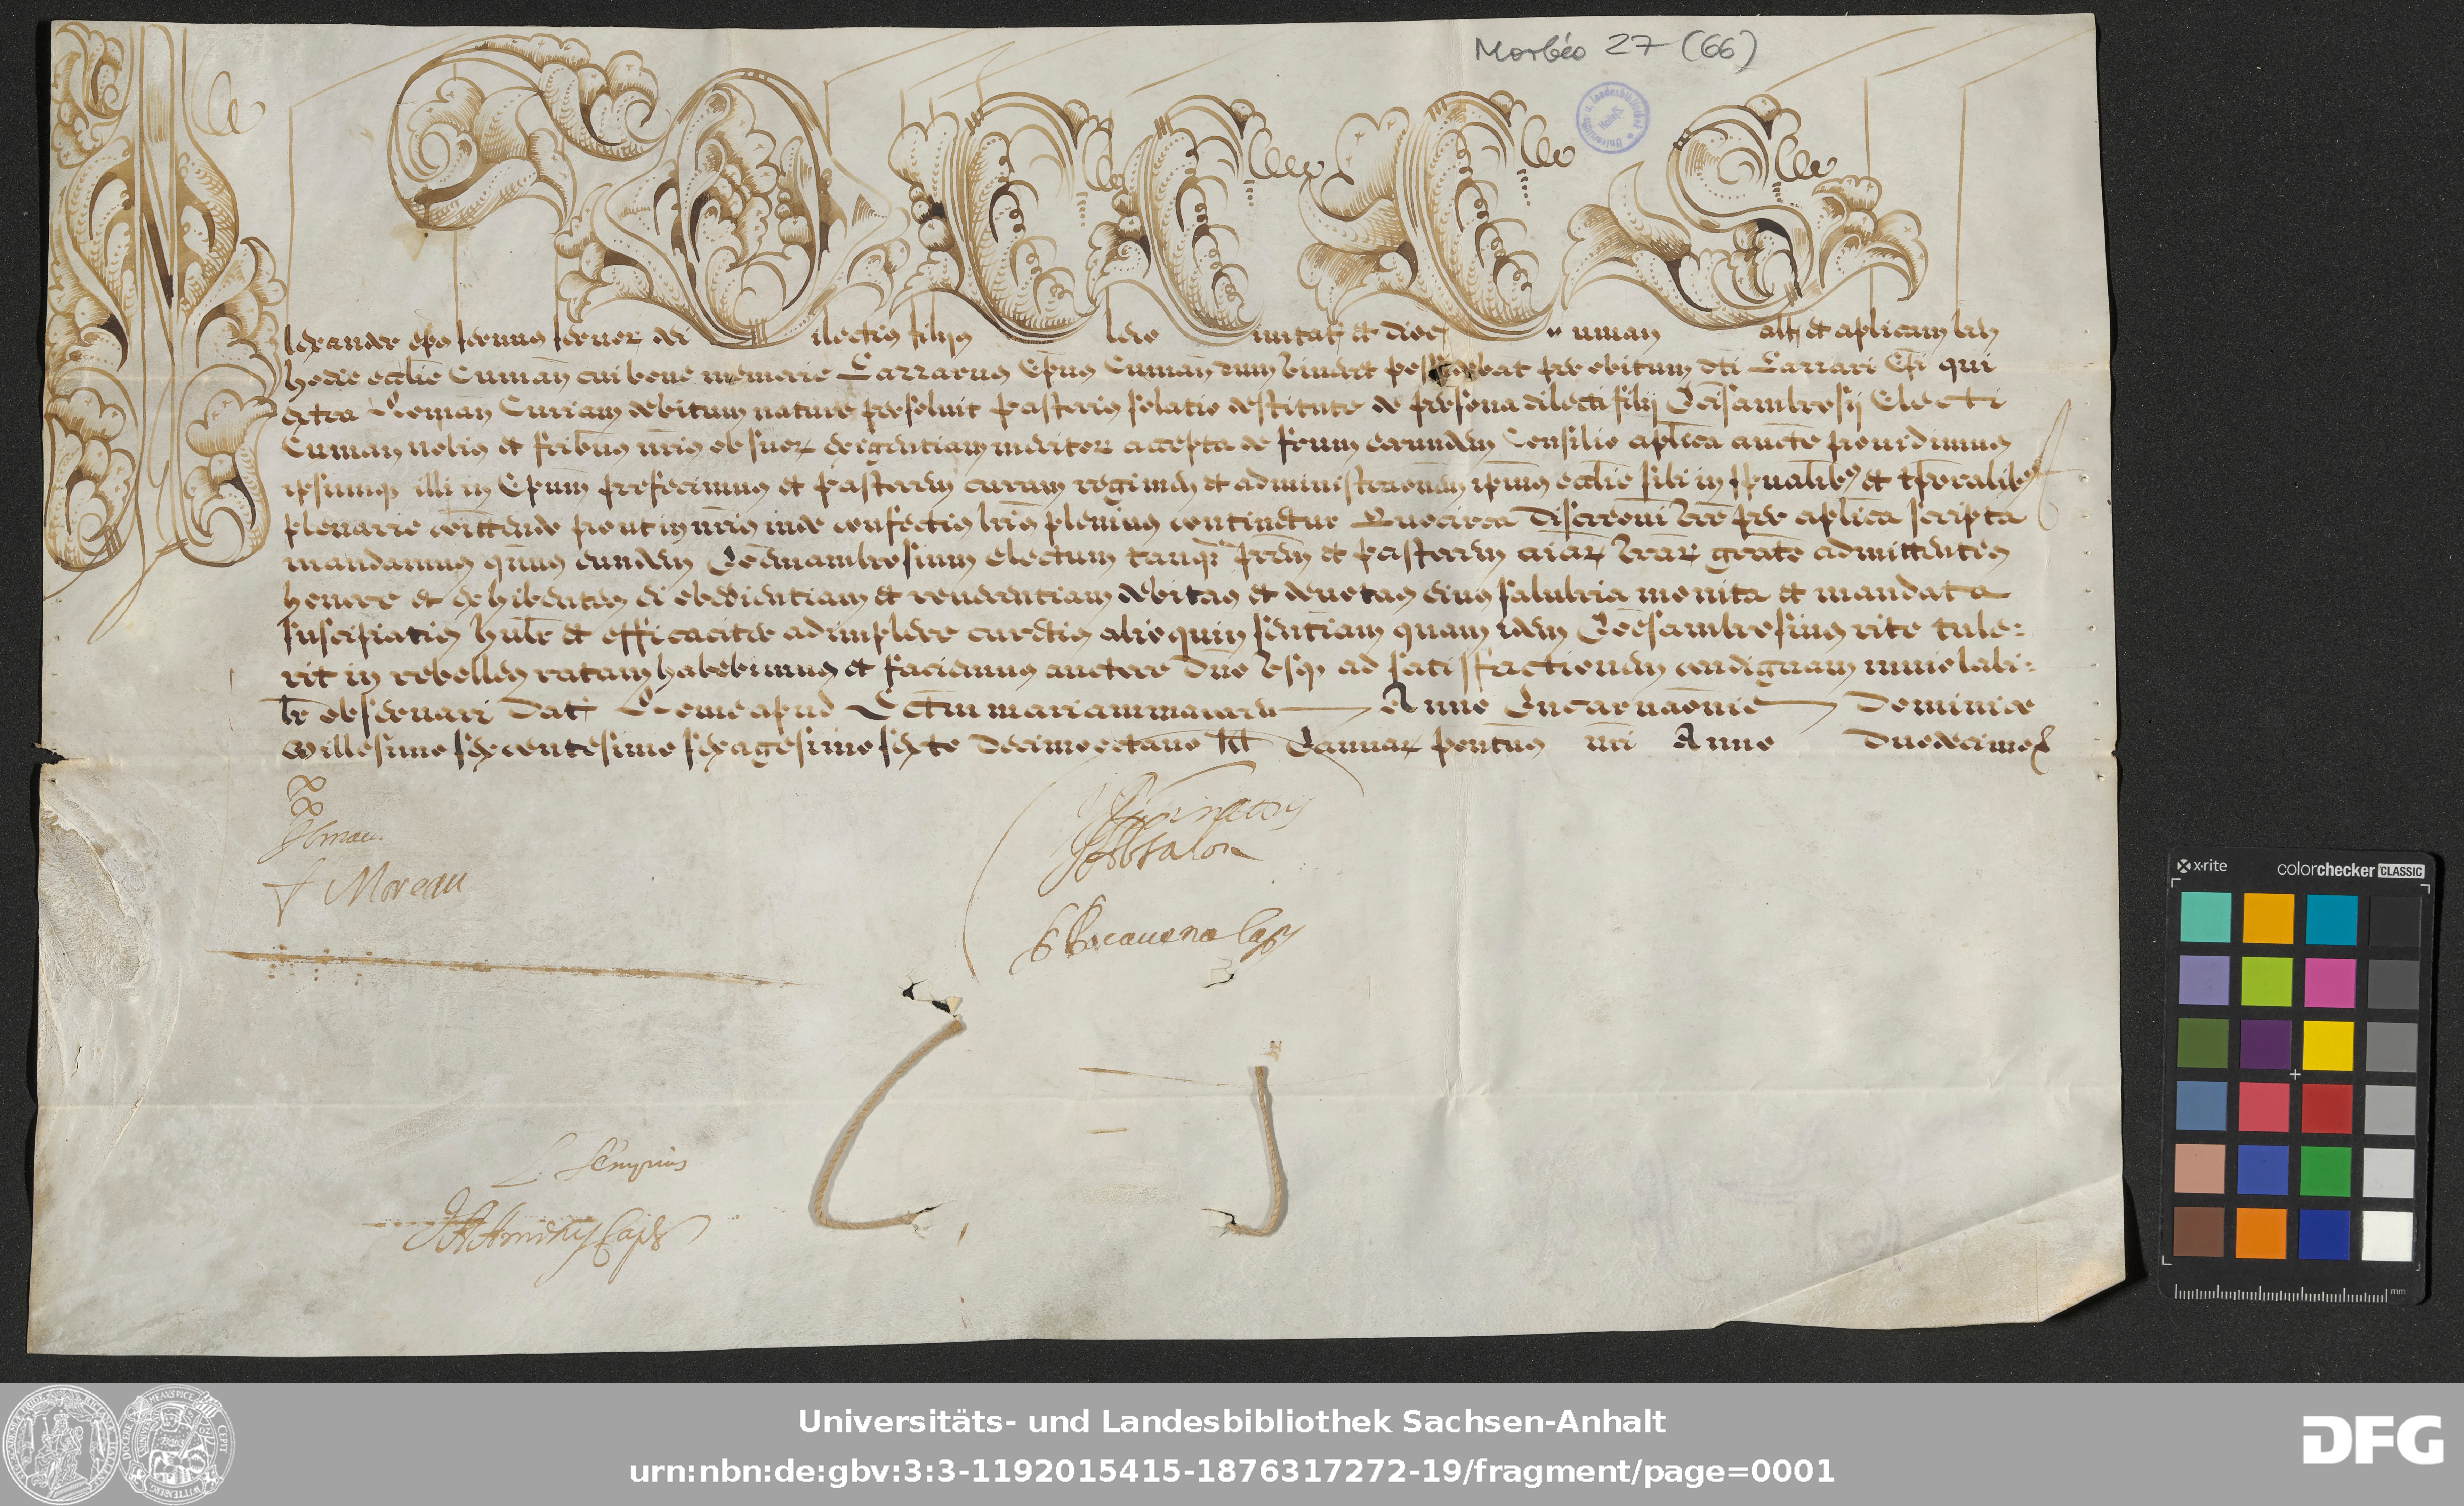 Morbio 27 (66)
Alexander eps servus servor dei Dilectis filijs Clero Civitat et dioc Cuman Salt et aplicam bn
hodie ecclie Cuman cui bone memorie Lazzarus Epus Cuman dum viveret presidebat per obitum dti Lazzari Epi qui
extra Roman Curiam debitum nature persolvit pastoris solatio destitute de persona dilecti filij Joisambrosij Electi
Cuman nobis et fribus nris ob suor exigentiam meritor accepta de frum eorundem Consilio aplica aucte providimus
ipsumq illi in Epum prefecimus et pastorem curam regimen et administraonem ipsius ecclie sibi in spualibus et tporalibus
plenarie comittendo prout in nris inde confectis lris plenius continetur Quocirca Discreoni vre per aplica scripta
mandamus quatenus eundem Joemambrosium electum tanq prem et pastorem aiar vrar grate admittentes
honore et exhibentes ei obedientiam et reverentiam debitas et devotas eius salubria monita et mandata
suscipiatis hulr et efficaciter adimplere curetis alioquin sententiam quam idem Joesambrosius rite tule=
rit in rebelles ratam habebimus et faciemus auctore Dno usq ad satisfactionem condignam inviolabi=
lr observari Dat Rome apud S Ctam mariam maiorem Anno Incarnaonis Dominice
Millesimo sexcentesimo sexagesimo sexto Decimo octavo kl Januar pontus nri Anno Duodecimo
Moreau
Absalon
L. Sempius
Universitäts- u. Landesbibliothek
Halle/S
x-rite
colorchecker CLASSIC
mm
Universitäts- und Landesbibliothek Sachsen-Anhalt
urn:nbn:de:gbv:3:3-1192015415-1876317272-19/fragment/page=0001
DFG